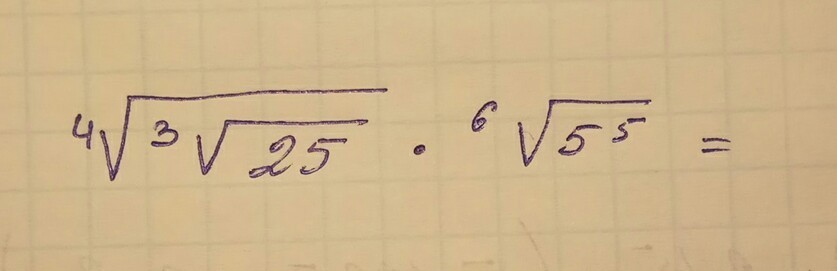 ⁴√(³√25) · ⁶√(5⁵) =